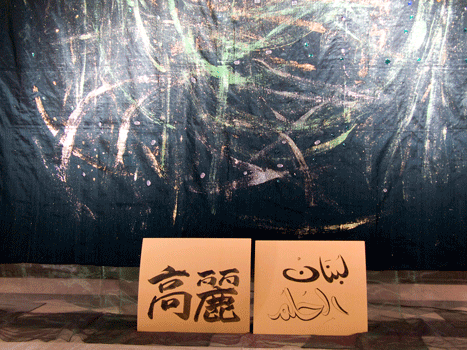 高麗
لبنان
الحلم